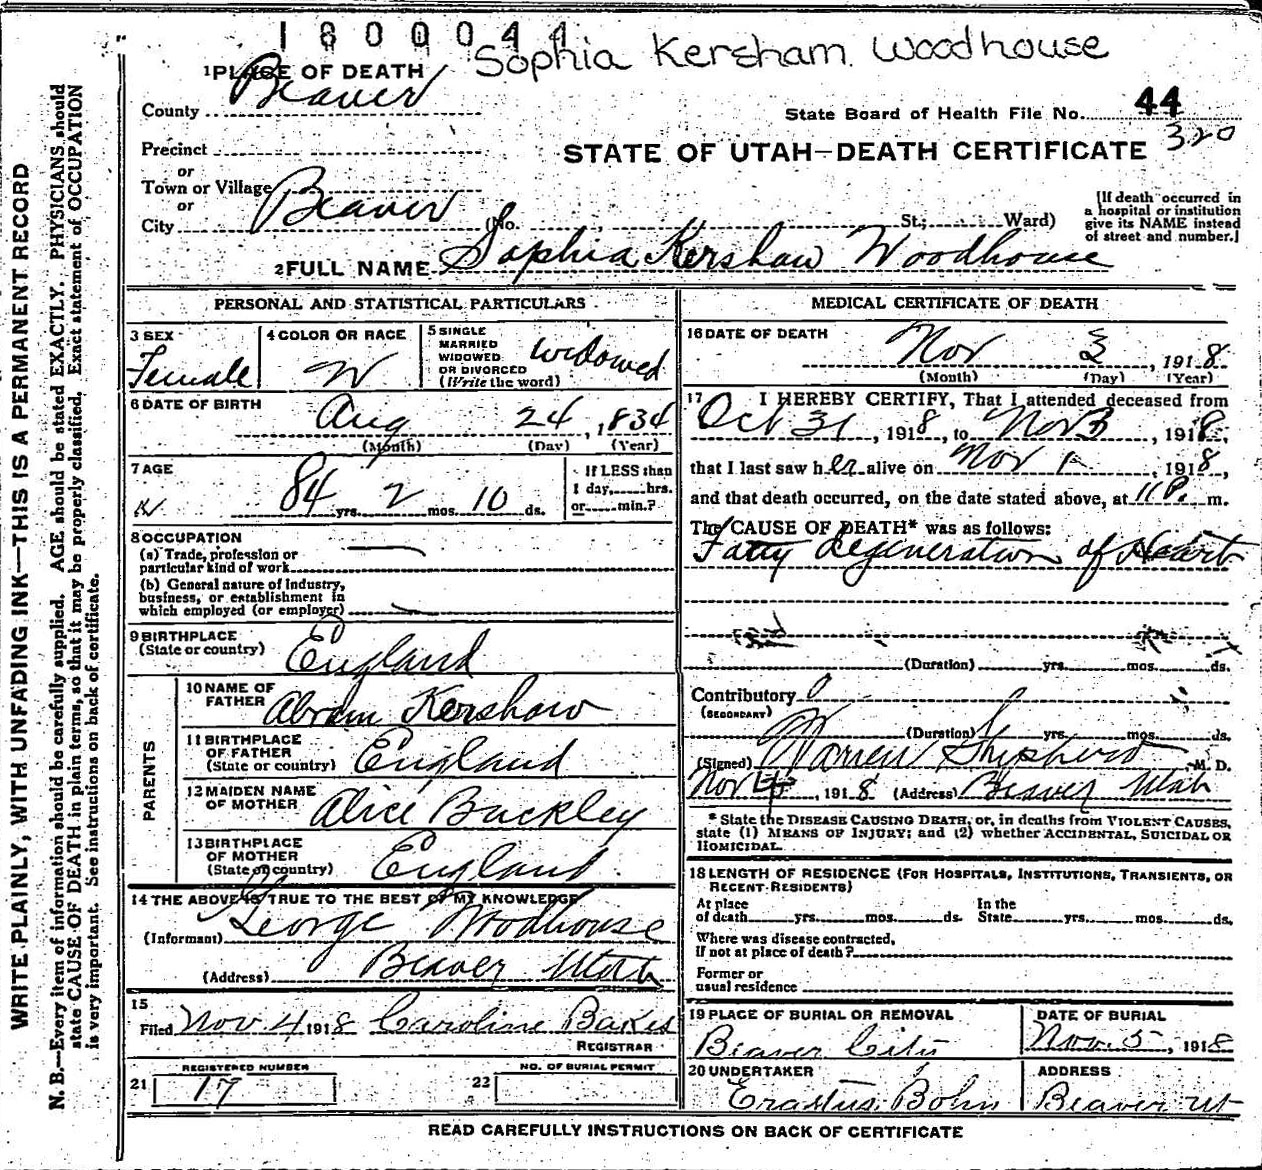 1800044
Sophia Kersham Woodhouse
1 PLACE OF DEATH
County Beaver
State Board of Health File No. 44
320
Precinct
or
STATE OF UTAH—DEATH CERTIFICATE
Town or Village
or
City Beaver (No. St.; Ward)
[If death occurred in
a hospital or institution
give its NAME instead
of street and number.]
2 FULL NAME Sophia Kershaw Woodhouse
PERSONAL AND STATISTICAL PARTICULARS
3 SEX
Female
4 COLOR OR RACE
W
5 SINGLE
MARRIED
WIDOWED
OR DIVORCED
(Write the word)
widowed
6 DATE OF BIRTH
Aug 24, 1834
(Month) (Day) (Year)
7 AGE
84 yrs. 2 mos. 10 ds.
If LESS than
1 day, hrs.
or min.?
8 OCCUPATION
(a) Trade, profession or
particular kind of work
(b) General nature of industry,
business, or establishment in
which employed (or employer)
9 BIRTHPLACE
(State or country) England
PARENTS
10 NAME OF
FATHER Abram Kershaw
11 BIRTHPLACE
OF FATHER
(State or country) England
12 MAIDEN NAME
OF MOTHER Alice Buckley
13 BIRTHPLACE
OF MOTHER
(State or country) England
14 THE ABOVE IS TRUE TO THE BEST OF MY KNOWLEDGE
(Informant) George Woodhouse
(Address) Beaver Utah
15
Filed Nov 4 1918 Caroline Bakes
REGISTRAR
REGISTERED NUMBER
21 17
NO. OF BURIAL PERMIT
22
MEDICAL CERTIFICATE OF DEATH
16 DATE OF DEATH
Nov 3, 1918
(Month) (Day) (Year)
17 I HEREBY CERTIFY, That I attended deceased from
Oct 31, 1918, to Nov 3, 1918,
that I last saw her alive on Nov 1, 1918,
and that death occurred, on the date stated above, at 11 P. m.
The CAUSE OF DEATH* was as follows:
Fatty degeneration of Heart
(Duration) yrs. mos. ds.
Contributory 0
(SECONDARY)
(Duration) yrs. mos. ds.
(Signed) Warren Shepherd M. D.
Nov 4, 1918 (Address) Beaver Utah
* State the DISEASE CAUSING DEATH, or, in deaths from VIOLENT CAUSES,
state (1) MEANS OF INJURY; and (2) whether ACCIDENTAL, SUICIDAL OR
HOMICIDAL.
18 LENGTH OF RESIDENCE (FOR HOSPITALS, INSTITUTIONS, TRANSIENTS, OR
RECENT RESIDENTS)
At place
of death yrs. mos. ds.
In the
State yrs. mos. ds.
Where was disease contracted,
If not at place of death?
Former or
usual residence
19 PLACE OF BURIAL OR REMOVAL
Beaver City
DATE OF BURIAL
Nov. 5, 1918
20 UNDERTAKER
Erastus Bohn
ADDRESS
Beaver Ut
READ CAREFULLY INSTRUCTIONS ON BACK OF CERTIFICATE
WRITE PLAINLY, WITH UNFADING INK—THIS IS A PERMANENT RECORD
N. B.—Every item of information should be carefully supplied. AGE should be stated EXACTLY. PHYSICIANS should
state CAUSE OF DEATH in plain terms, so that it may be properly classified. Exact statement of OCCUPATION
is very important. See instructions on back of certificate.